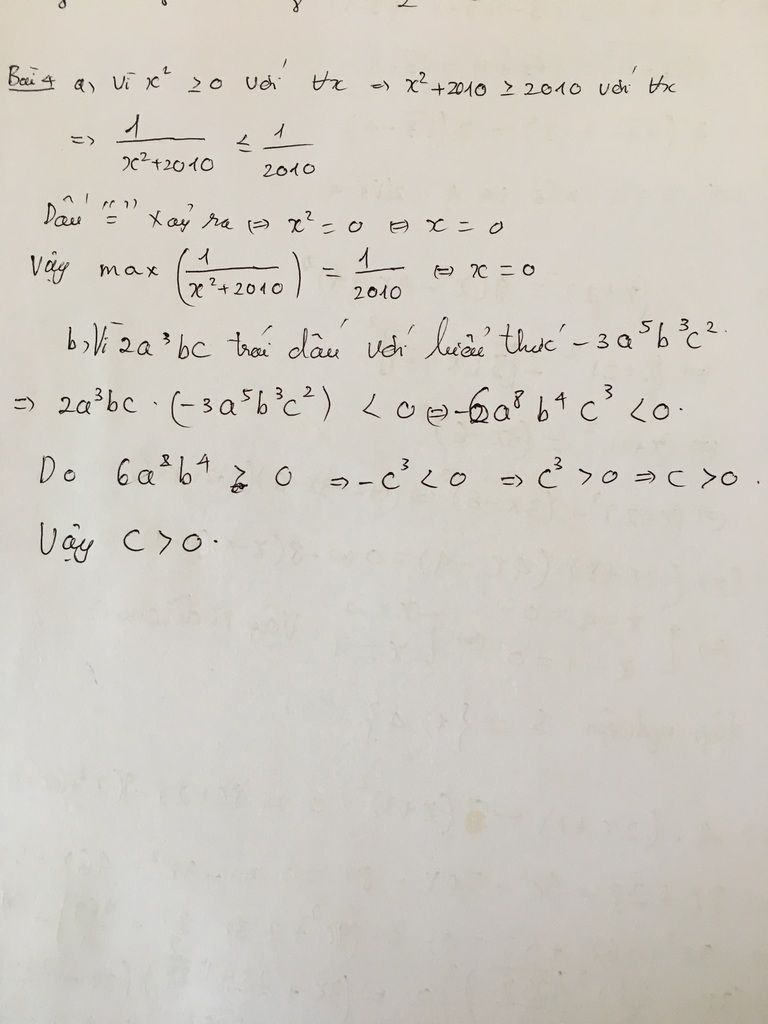 Bài 4 a, Vì x² ≥ 0 với ∀x => x²+2010 ≥ 2010 với ∀x
=> 1/(x²+2010) ≤ 1/2010
Dấu "=" xảy ra <=> x² = 0 <=> x = 0
Vậy max (1/(x²+2010)) = 1/2010 <=> x = 0
b, Vì 2a³bc trái dấu với biểu thức -3a⁵b³c².
=> 2a³bc · (-3a⁵b³c²) < 0 <=> -6a⁸b⁴c³ < 0.
Do 6a⁸b⁴ ≥ 0 => -c³ < 0 => c³ > 0 => c > 0.
Vậy c > 0.